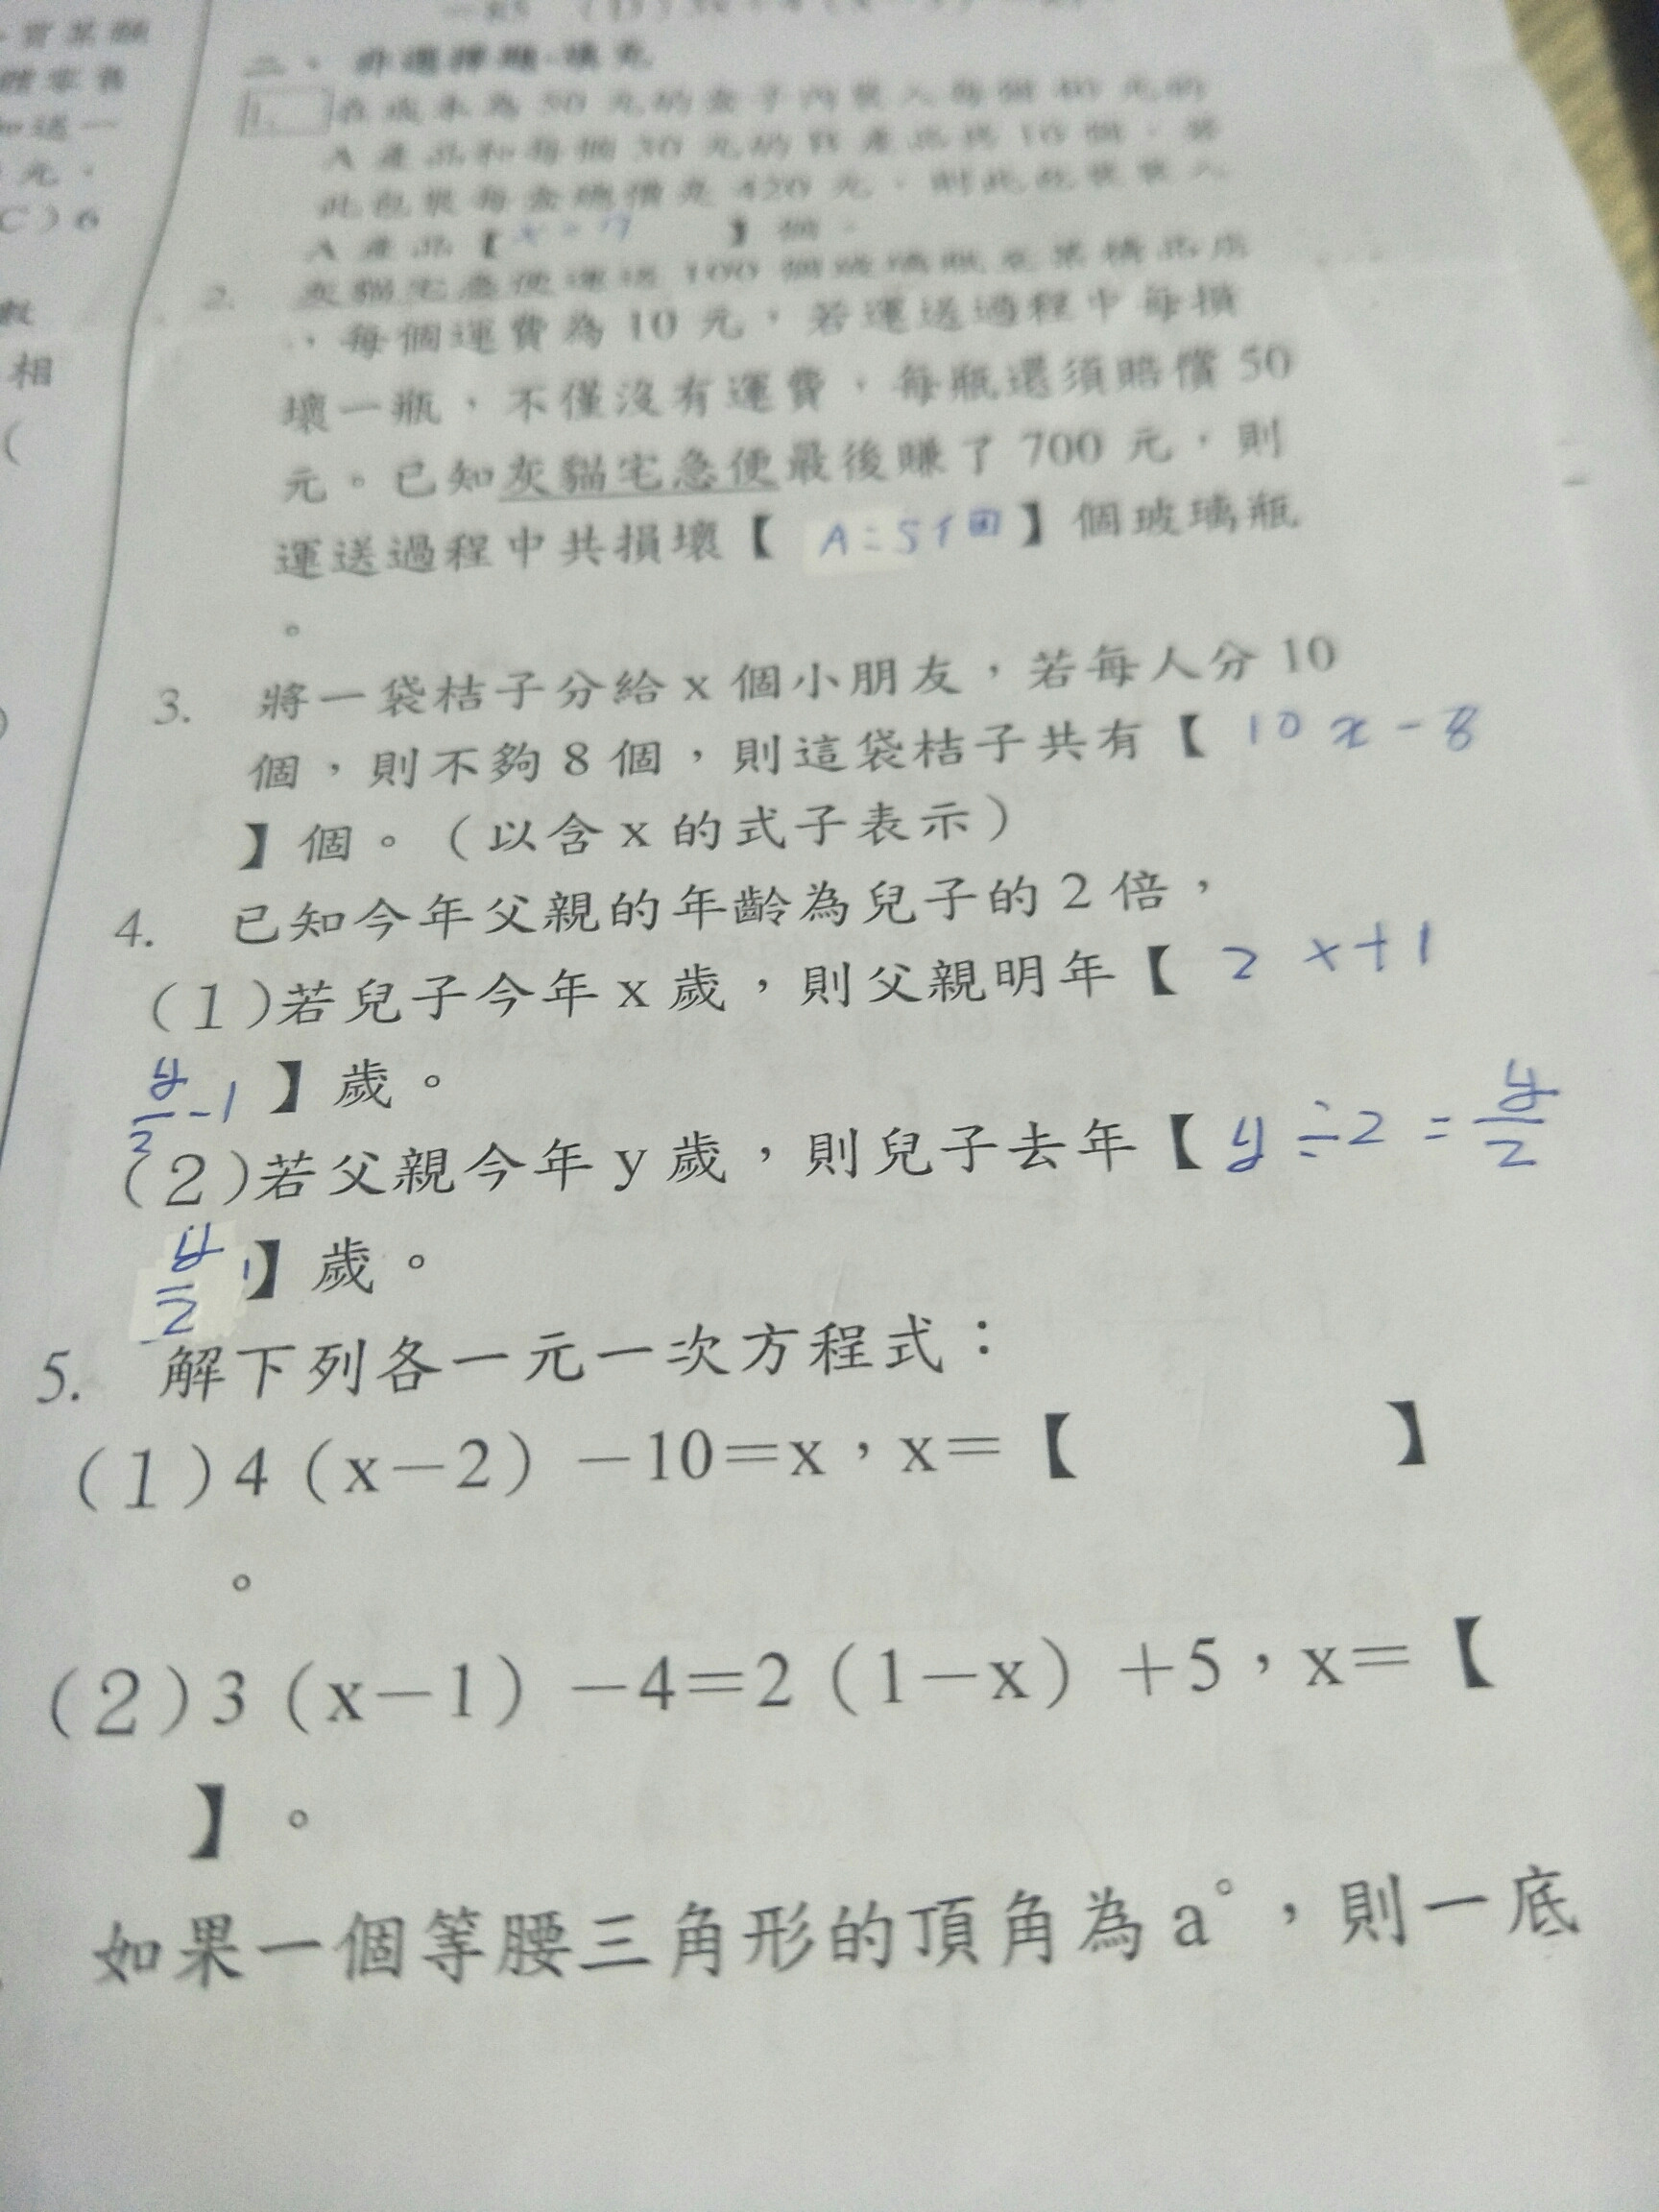 二、非選擇題-填充
1. 在成本為 50 元的盒子內裝入每個 40 元的
A 產品和每個 30 元的 B 產品共 10 個,若
此包裝每盒總價是 420 元,則此包裝裝入
A 產品【 】個。
2. 灰貓宅急便運送 100 個玻璃瓶至某精品店
,每個運費為 10 元,若運送過程中每損
壞一瓶,不僅沒有運費,每瓶還須賠償 50
元。已知灰貓宅急便最後賺了 700 元,則
運送過程中共損壞【 A=5個 】個玻璃瓶
。
3. 將一袋桔子分給 x 個小朋友,若每人分 10
個,則不夠 8 個,則這袋桔子共有【 10x-8
】個。(以含 x 的式子表示)
4. 已知今年父親的年齡為兒子的 2 倍,
(1)若兒子今年 x 歲,則父親明年【 2x+1
y/2-1 】歲。
(2)若父親今年 y 歲,則兒子去年【 y÷2=y/2
y/2 】歲。
5. 解下列各一元一次方程式:
(1)4(x-2)-10=x,x=【 】
。
(2)3(x-1)-4=2(1-x)+5,x=【
】。
如果一個等腰三角形的頂角為 a°,則一底